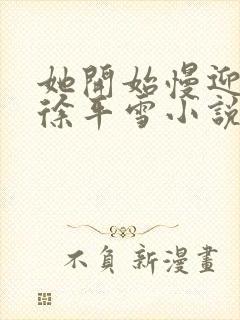 她開始慢迎
徐平雪小說
不負新漫畫